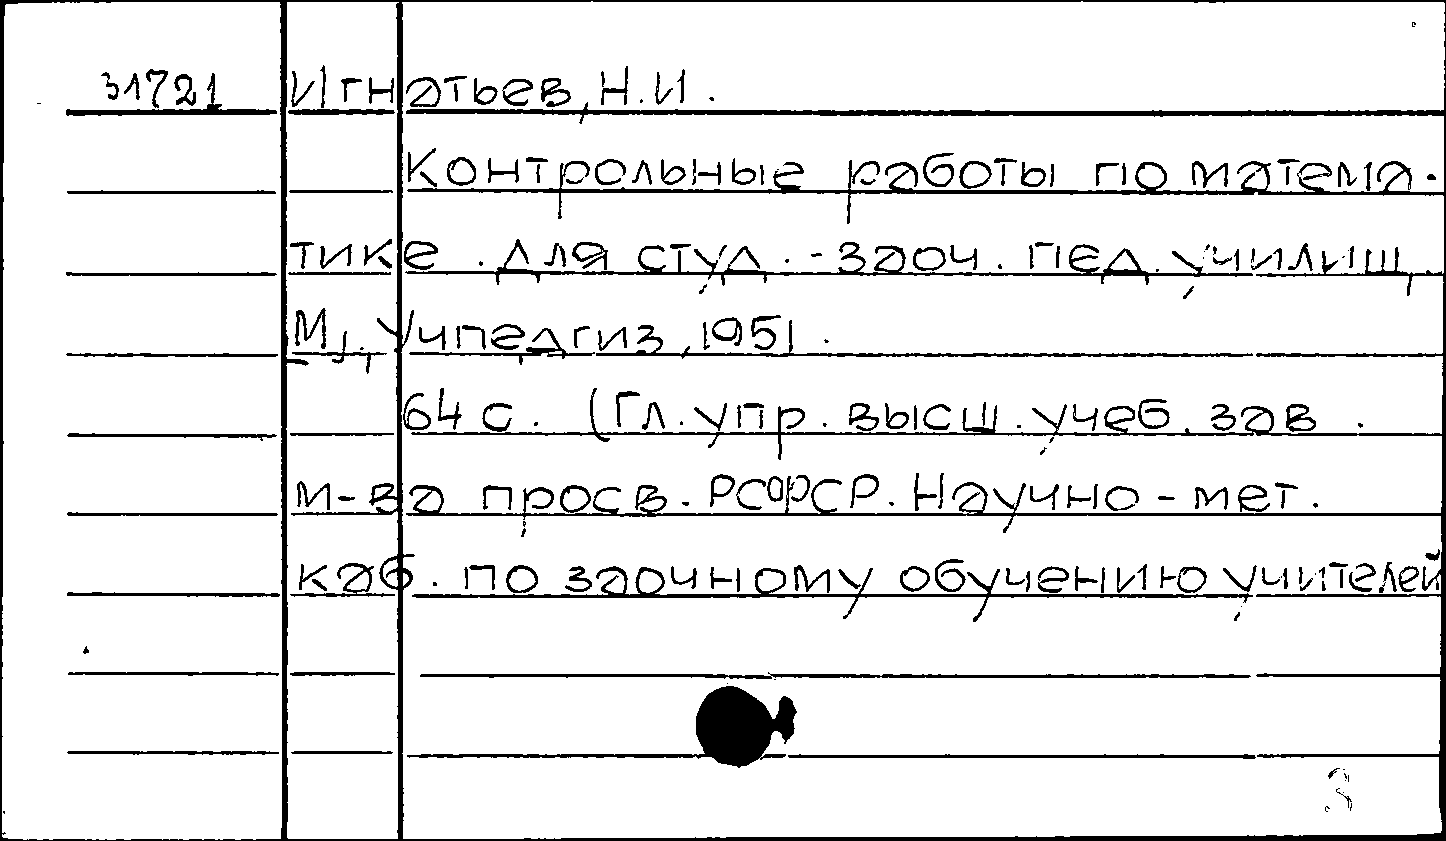 31721 Игнатьев, Н.И.
Контрольные работы по матема-
тике. Для студ.-заоч. пед. училищ.
М., Учпедгиз, 1951.
64 с. (Гл. упр. высш. учеб. зав.
м-ва просв. РСФСР. Научно-мет.
каб. по заочному обучению учителей
3